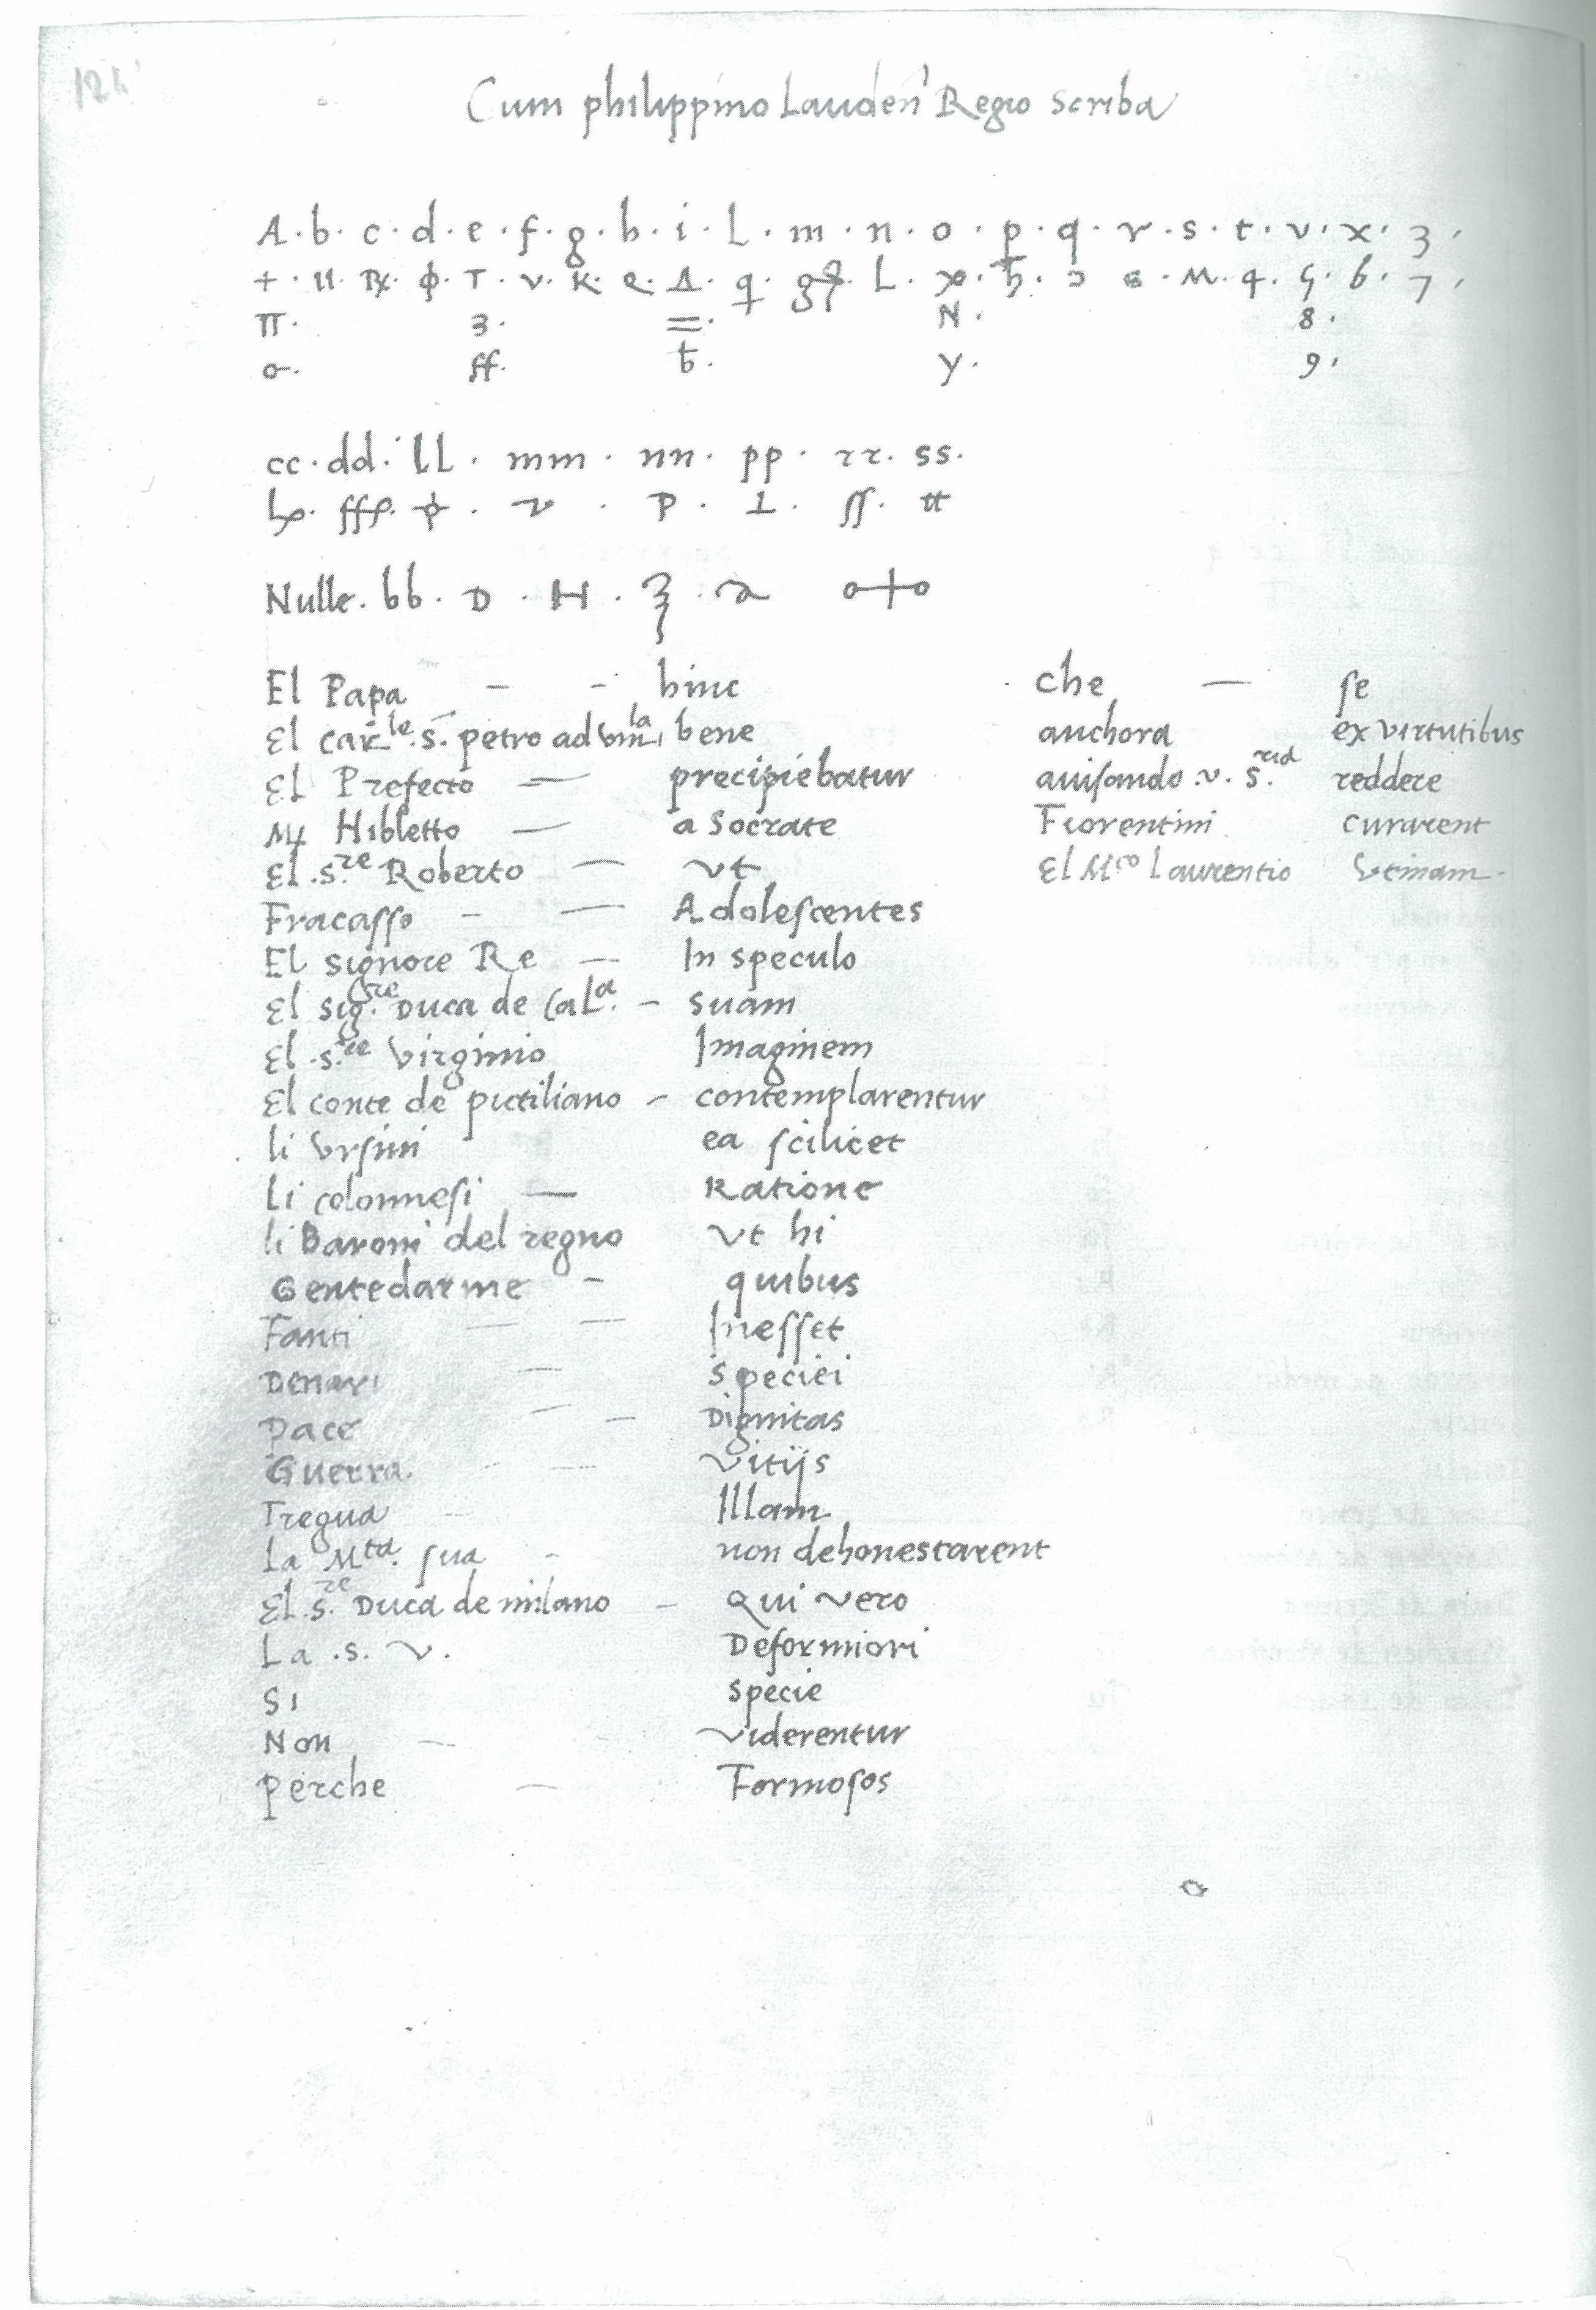 Cum philippino Lauden' Regio scriba
A · b · c · d · e · f · g · h · i · L · m · n · o · p · q · r · s · t · v · x · z ·
cc · dd · LL · mm · nn · pp · rr · ss ·
Nulle · bb · D · H ·
El Papa — — hinc
El car.le s. petro ad vin.la bene
El Prefecto — precipiebatur
Hibletto — a Socrate
El .s.re Roberto — vt
Fracasso — — Adolescentes
El signore Re — In speculo
El sig.re Duca de Cal.a — suam
El .s.re Virginio Imaginem
El conte de pictiliano — contemplarentur
li Vrsini ea scilicet
Li colonnesi — Ratione
li Baroni del regno vt hi
Gentedarme — quibus
Fanti — — Inesset
Denari — speciei
Pace — — Dignitas
Guerra — — vitijs
Tregua — Illam
La M.ta sua — non dehonestarent
El .s.re Duca de milano — Qui vero
La .s. v. Deformiori
Si specie
Non — viderentur
Perche — Formosos
che — se
anchora ex virtutibus
auisando .v. s.ria reddere
Fiorentini curarent
El M.co Laurentio Vtinam